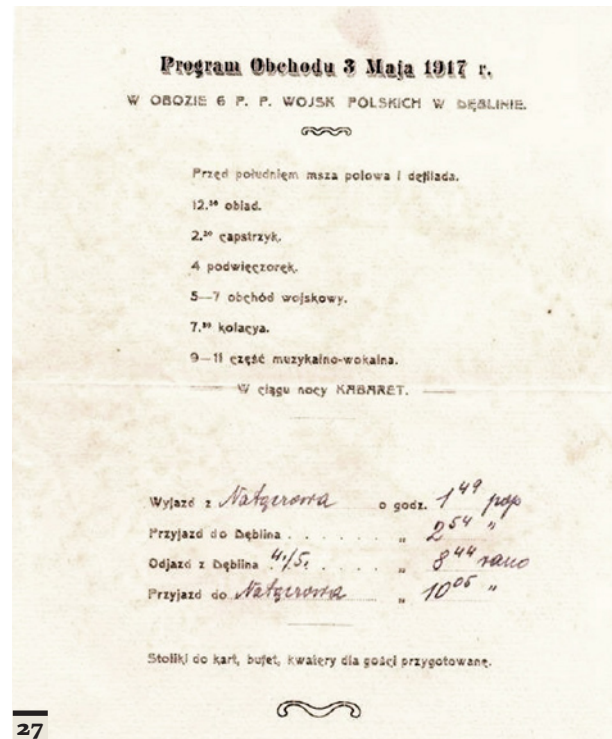 Program Obchodu 3 Maja 1917 r.
W OBOZIE 6 P. P. WOJSK POLSKICH W DĘBLINIE.
Przed południem msza polowa i defilada.
12.³⁰ obiad.
2.³⁰ capstrzyk.
4 podwieczorek.
5—7 obchód wojskowy.
7.³⁰ kolacya.
9—11 część muzykalno-wokalna.
W ciągu nocy KABARET.
Wyjazd z o godz. 1⁴⁹ pop
Przyjazd do Dęblina . . . . . . „ 2⁵⁴ "
Odjazd z Dęblina 4./5. . . . . „ 8⁴⁴ rano
Przyjazd do „ 10⁰⁵ "
Stoliki do kart, bufet, kwatery dla gości przygotowane.
27